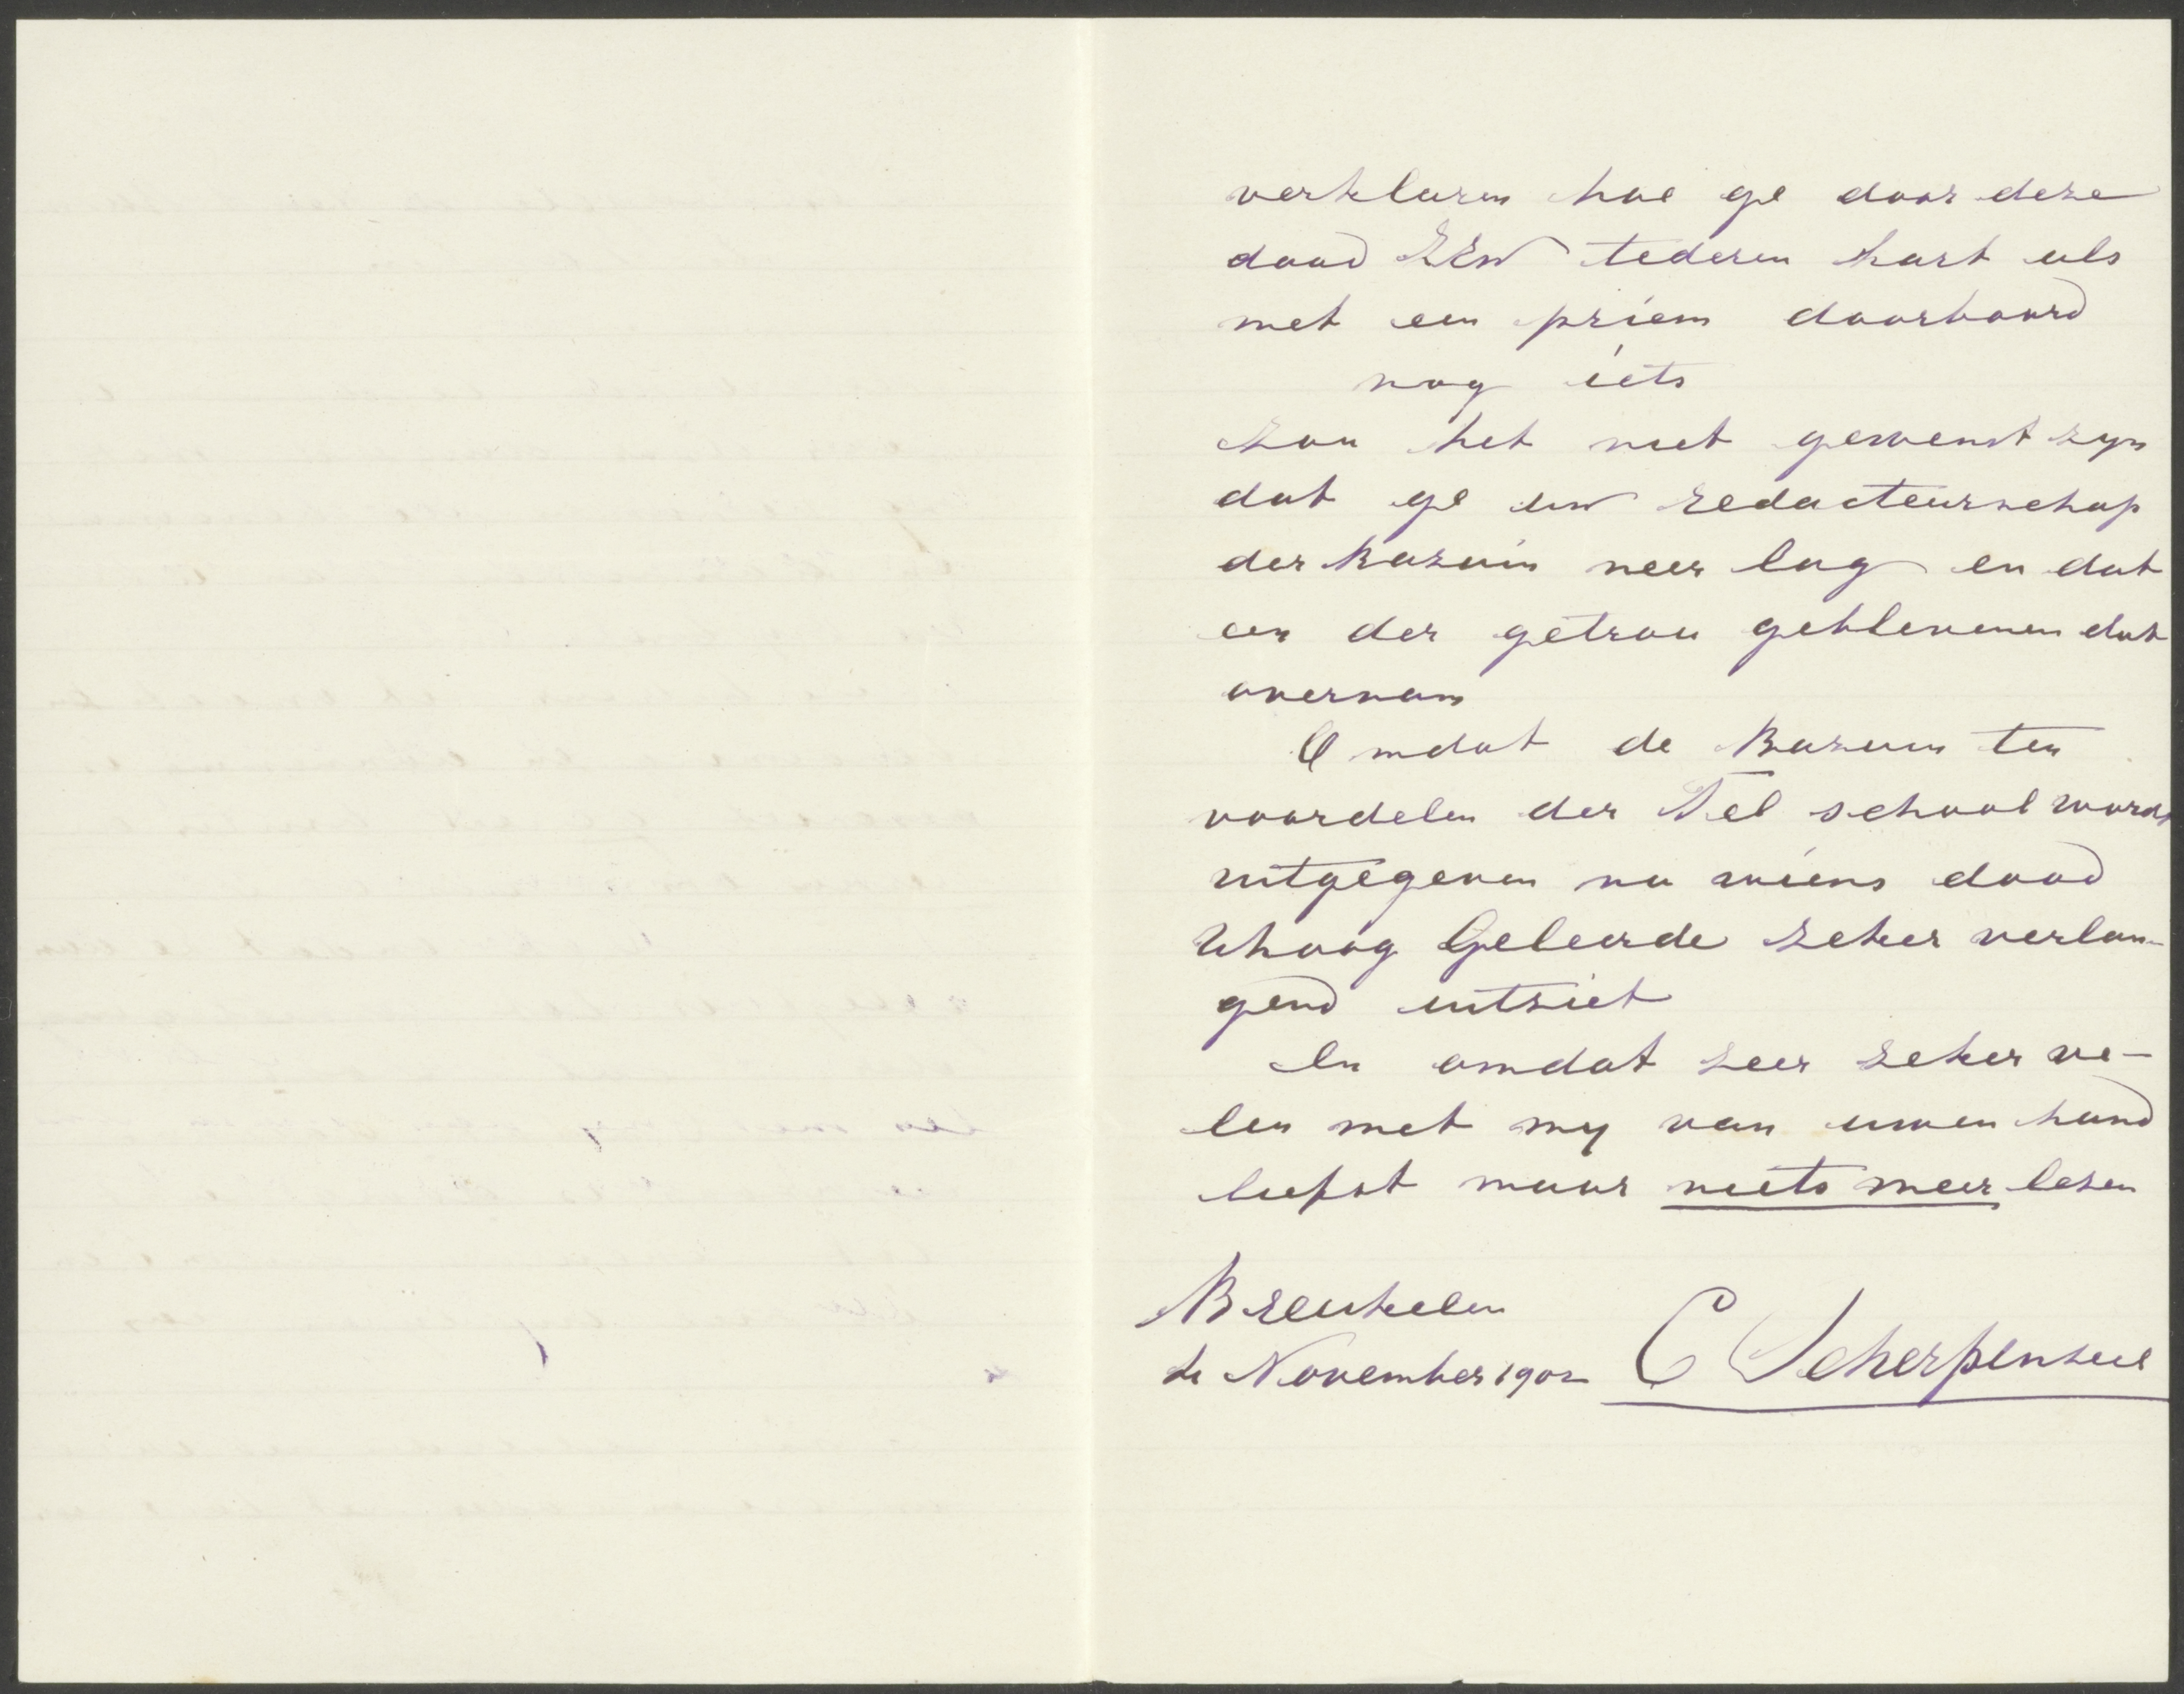 verklaren hoe ge door deze
daad ZEw tederen hart als
met een priem doorboord
nog iets
zou het niet gewenst zyn
dat ge uw redacteurschap
der Bazuin neer lag en dat
een der getrou geblevenen dat
overnam
Omdat de Bazuin ten
voordelen der Tel school wordt
uitgegeven na wiens dood
Uhoog Geleerde zeker verlan-
gend uitziet
En omdat zeer zeker ve-
len met my van uwen hand
liefst maar niets meer lezen
Breukelen
de November 1902 C Scherpenzeel